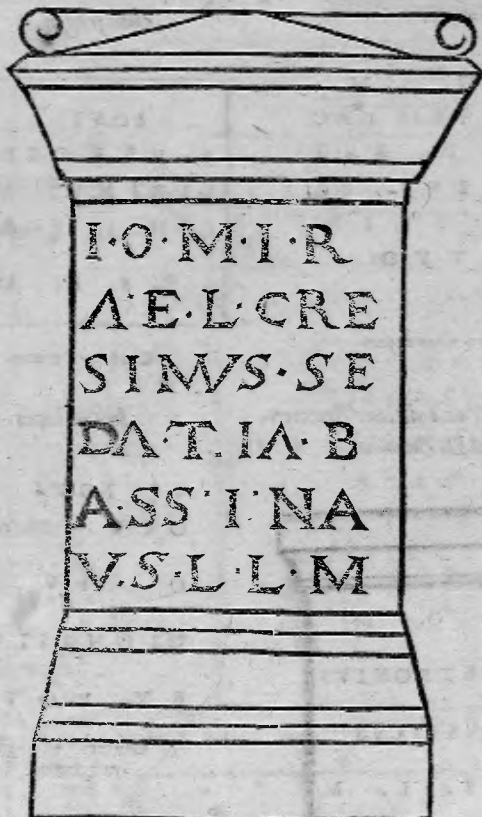 I·O·M·I·R
AE·L·CRE
SINVS·SE
DA·T·IA·B
A·SS·I·NA
V·S·L·L·M